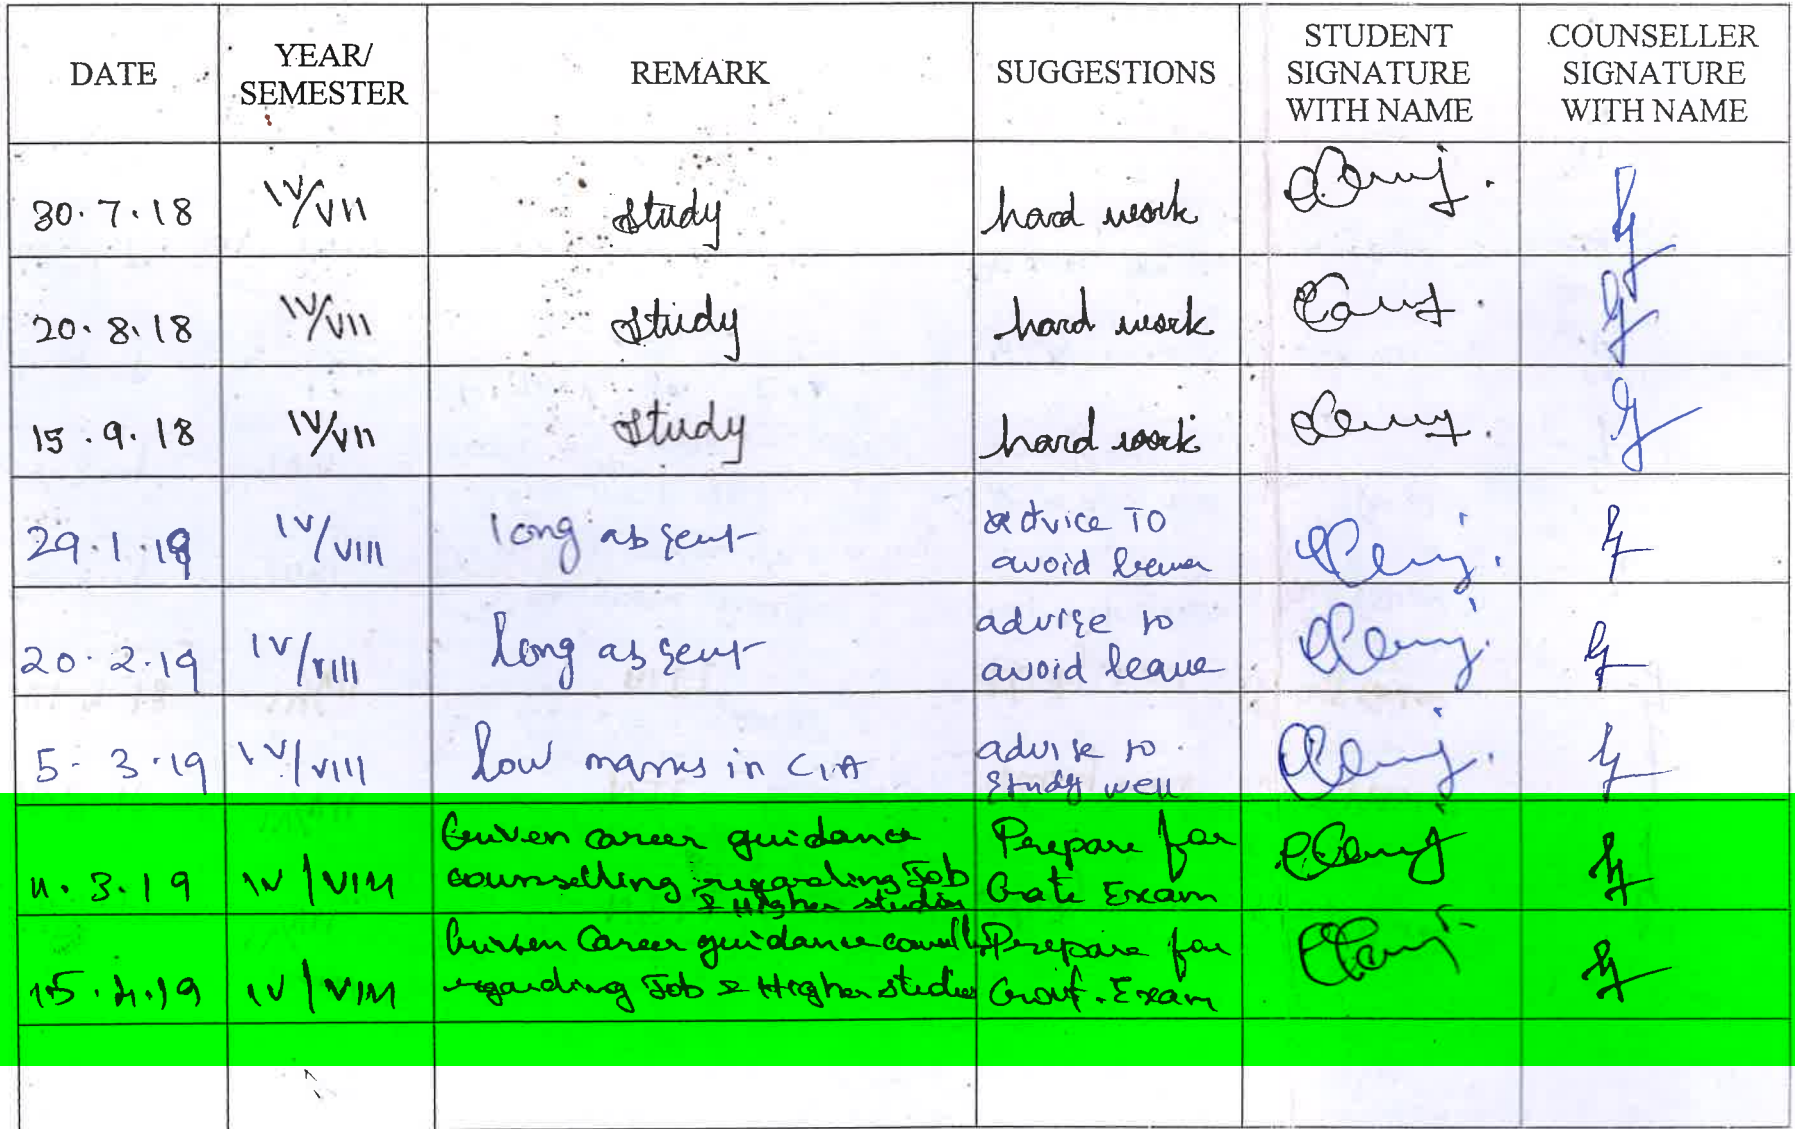 DATE
YEAR/
SEMESTER
REMARK
SUGGESTIONS
STUDENT
SIGNATURE
WITH NAME
COUNSELLER
SIGNATURE
WITH NAME
30.7.18 IV/VII study hard work
20.8.18 IV/VII study hard work
15.9.18 IV/VII study hard work
29.1.19 IV/VIII long absent
advice TO
avoid
20.2.19 IV/VIII long absent
advise to
avoid leave
5.3.19 IV/VIII low marks in CIA
advise to
study well
11.3.19 IV/VIII
Given career guidance
counselling regarding Job
& Higher studies
Prepare for
Gate Exam
15.4.19 IV/VIII
Given Career guidance
regarding Job & Higher studies
Prepare for
Govt. Exam